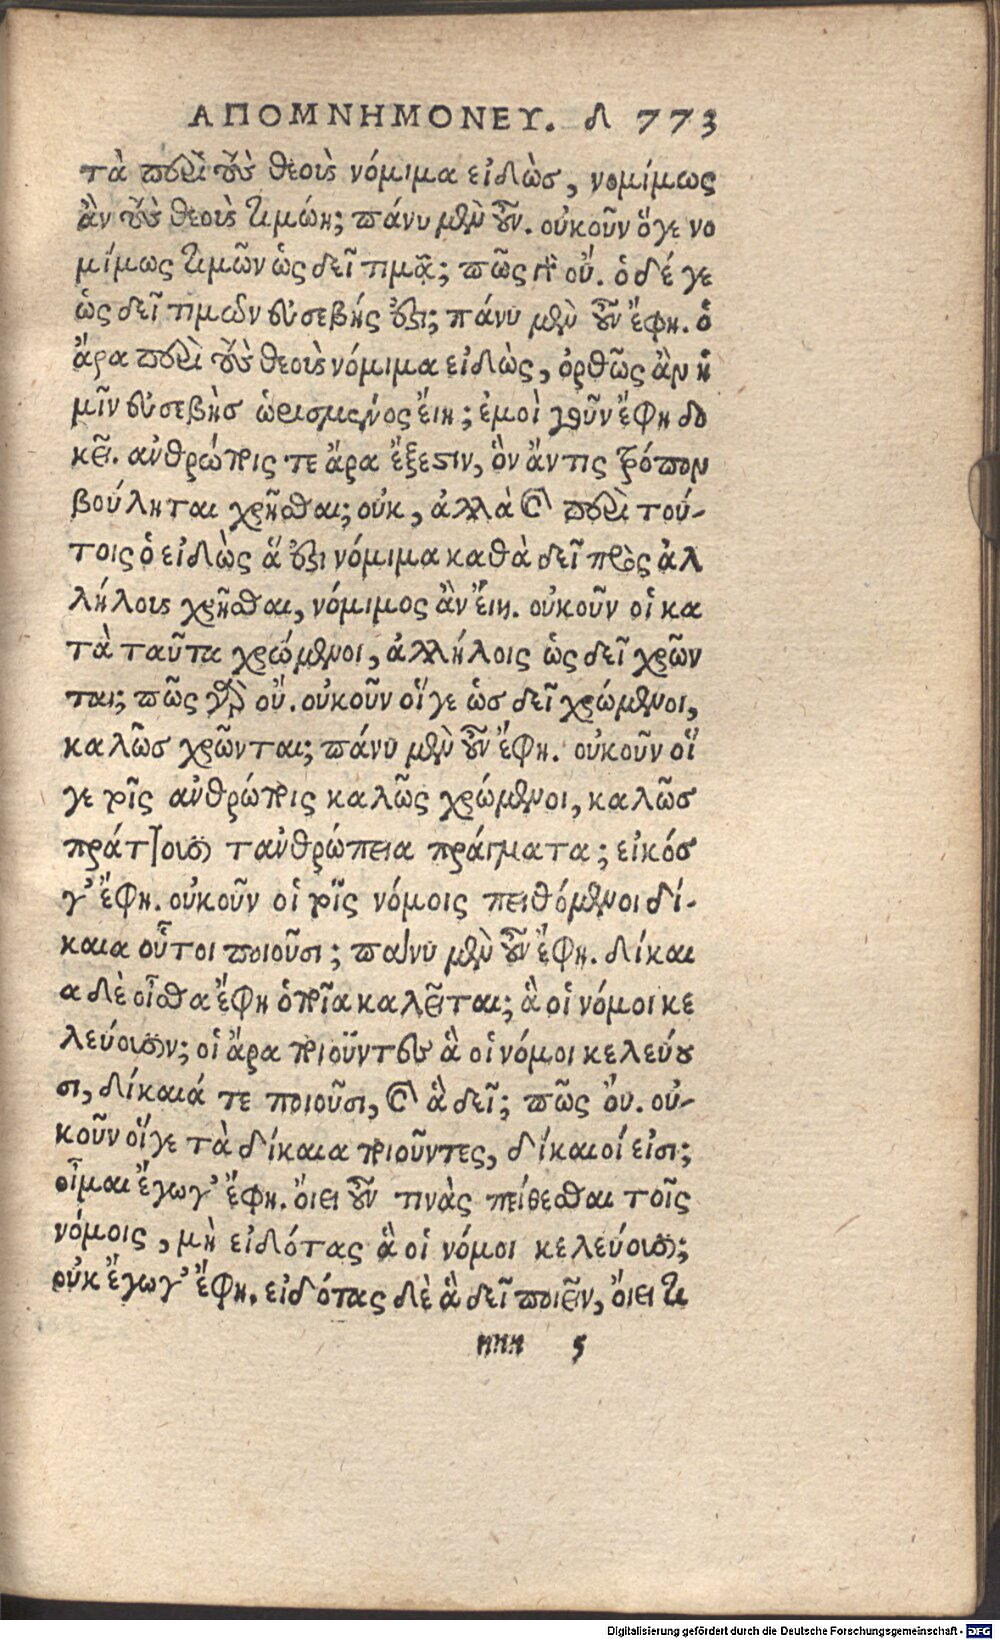 ΑΠΟΜΝΗΜΟΝΕΥ. δ 773
τὰ περὶ τοὺς θεοὺς νόμιμα εἰδὼσ, νομίμως
ἂν τοὺς θεοὺς τιμώη; πάνυ μὲν οὖν. οὐκοῦν ὅγε νο
μίμως τιμῶν ὡς δεῖ τιμᾷ; πῶς γὰρ οὔ. ὁ δέ γε
ὡς δεῖ τιμῶν εὐσεβής ἐστι; πάνυ μὲν οὖν ἔφη. ὁ
ἄρα περὶ τοὺς θεοὺς νόμιμα εἰδὼς, ὀρθῶς ἂν ἡ
μῖν εὐσεβὴσ ὡρισμένος ἔιη; ἐμοὶ γοῦν ἔφη δο
κεῖ. ἀνθρώποις τε ἄρα ἔξεστιν, ὃν ἄντις τρόπον
βούληται χρῆσθαι; οὐκ, ἀλλὰ καὶ περὶ τού-
τοις ὁ εἰδὼς ἅ ἐστι νόμιμα καθὰ δεῖ πρὸς ἀλ
λήλους χρῆσθαι, νόμιμος ἂν ἔιη. οὐκοῦν οἱ κα
τὰ ταῦτα χρώμενοι, ἀλλήλοις ὡς δεῖ χρῶν
ται; πῶς γὰρ οὔ. οὐκοῦν οἵ γε ὡσ δεῖ χρώμενοι,
καλῶσ χρῶνται; πάνυ μὲν οὖν ἔφη. οὐκοῦν οἵ
γε τοῖς ἀνθρώποις καλῶς χρώμενοι, καλῶσ
πράττουσι τἀνθρώπεια πράγματα; εἰκόσ
γ' ἔφη. οὐκοῦν οἱ τοῖς νόμοις πειθόμενοι δί-
καια οὗτοι ποιοῦσι; πάνυ μὲν οὖν ἔφη. δίκαι
α δὲ οἶσθα ἔφη ὁποῖα καλεῖται; ἃ οἱ νόμοι κε
λεύουσιν; οἱ ἄρα ποιοῦντες ἃ οἱ νόμοι κελεύου
σι, δίκαιά τε ποιοῦσι, καὶ ἃ δεῖ; πῶς ὄυ. οὐ-
κοῦν οἵγε τὰ δίκαια ποιοῦντες, δίκαιοί εἰσι;
οἶμαι ἔγωγ' ἔφη. ὄιει οὖν τινὰς πείθεσθαι τοῖς
νόμοις, μὴ εἰδότας ἃ οἱ νόμοι κελεύουσι;
οὐκ ἔγωγ' ἔφη. εἰδότας δὲ ἃ δεῖ ποιεῖν, ὄιει τι
ηηη 5
Digitalisierung gefördert durch die Deutsche Forschungsgemeinschaft - DFG